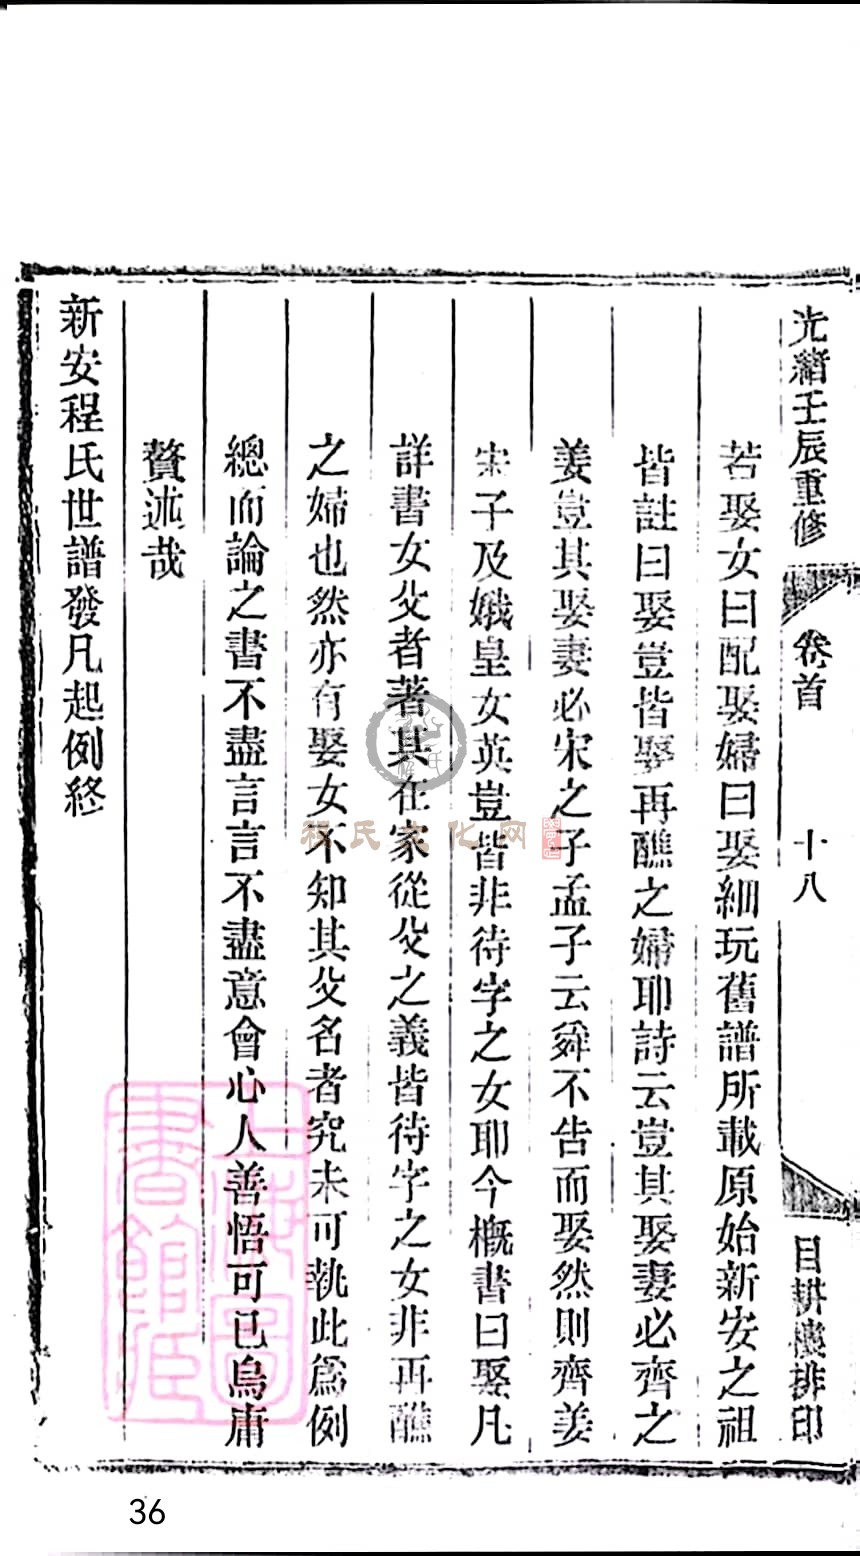 光緒壬辰重修
卷首
十八
目耕樓排印
若娶女曰配娶婦曰娶細玩舊譜所載原始新安之祖
皆註曰娶豈皆娶再醮之婦耶詩云豈其娶妻必齊之
姜豈其娶妻必宋之子孟子云舜不告而娶然則齊姜
宋子及娥皇女英豈皆非待字之女耶今概書曰娶凡
詳書女父者著其在家從父之義皆待字之女非再醮
之婦也然亦有娶女不知其父名者究未可執此爲例
總而論之書不盡言言不盡意會心人善悟可已烏庸
贅述哉
新安程氏世譜發凡起例終
程氏文化网
上海圖書館藏
36